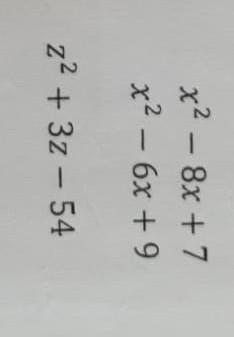 x² − 8x + 7
x² − 6x + 9
z² + 3z − 54